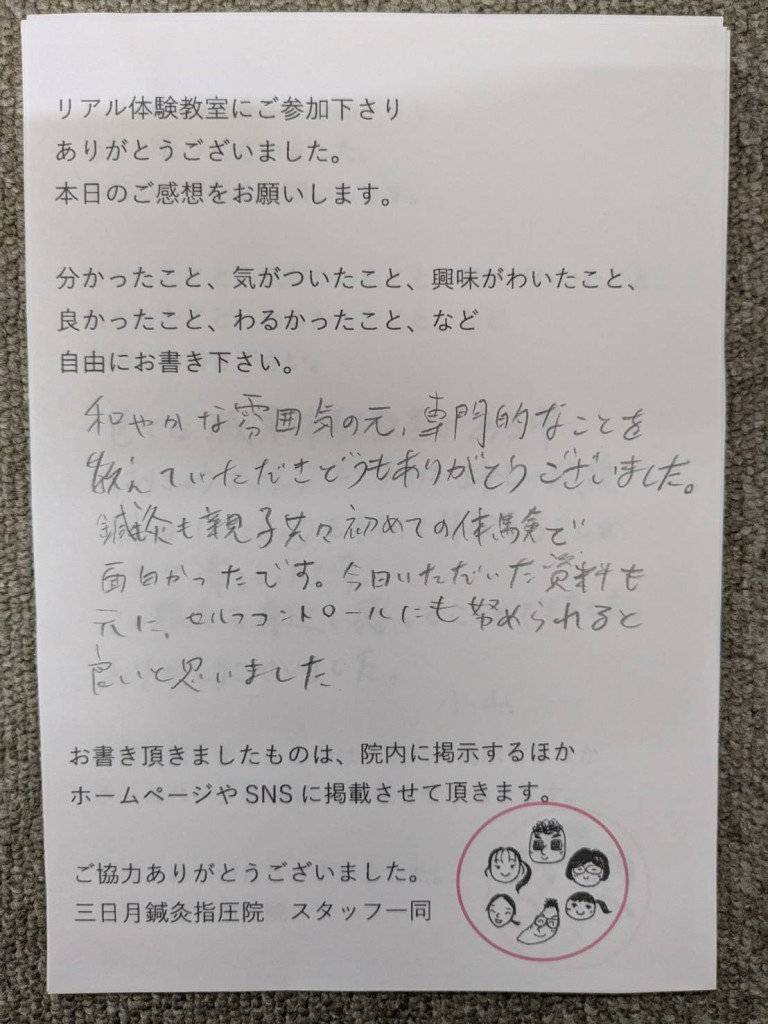 リアル体験教室にご参加下さり
ありがとうございました。
本日のご感想をお願いします。
分かったこと、気がついたこと、興味がわいたこと、
良かったこと、わるかったこと、など
自由にお書き下さい。
和やかな雰囲気の元、専門的なことを
教えていただきどうもありがとうございました。
鍼灸も親子共々初めての体験で
面白かったです。今日いただいた資料も
元に、セルフコントロールにも努められると
良いと思いました
お書き頂きましたものは、院内に掲示するほか
ホームページやSNSに掲載させて頂きます。
ご協力ありがとうございました。
三日月鍼灸指圧院　スタッフ一同